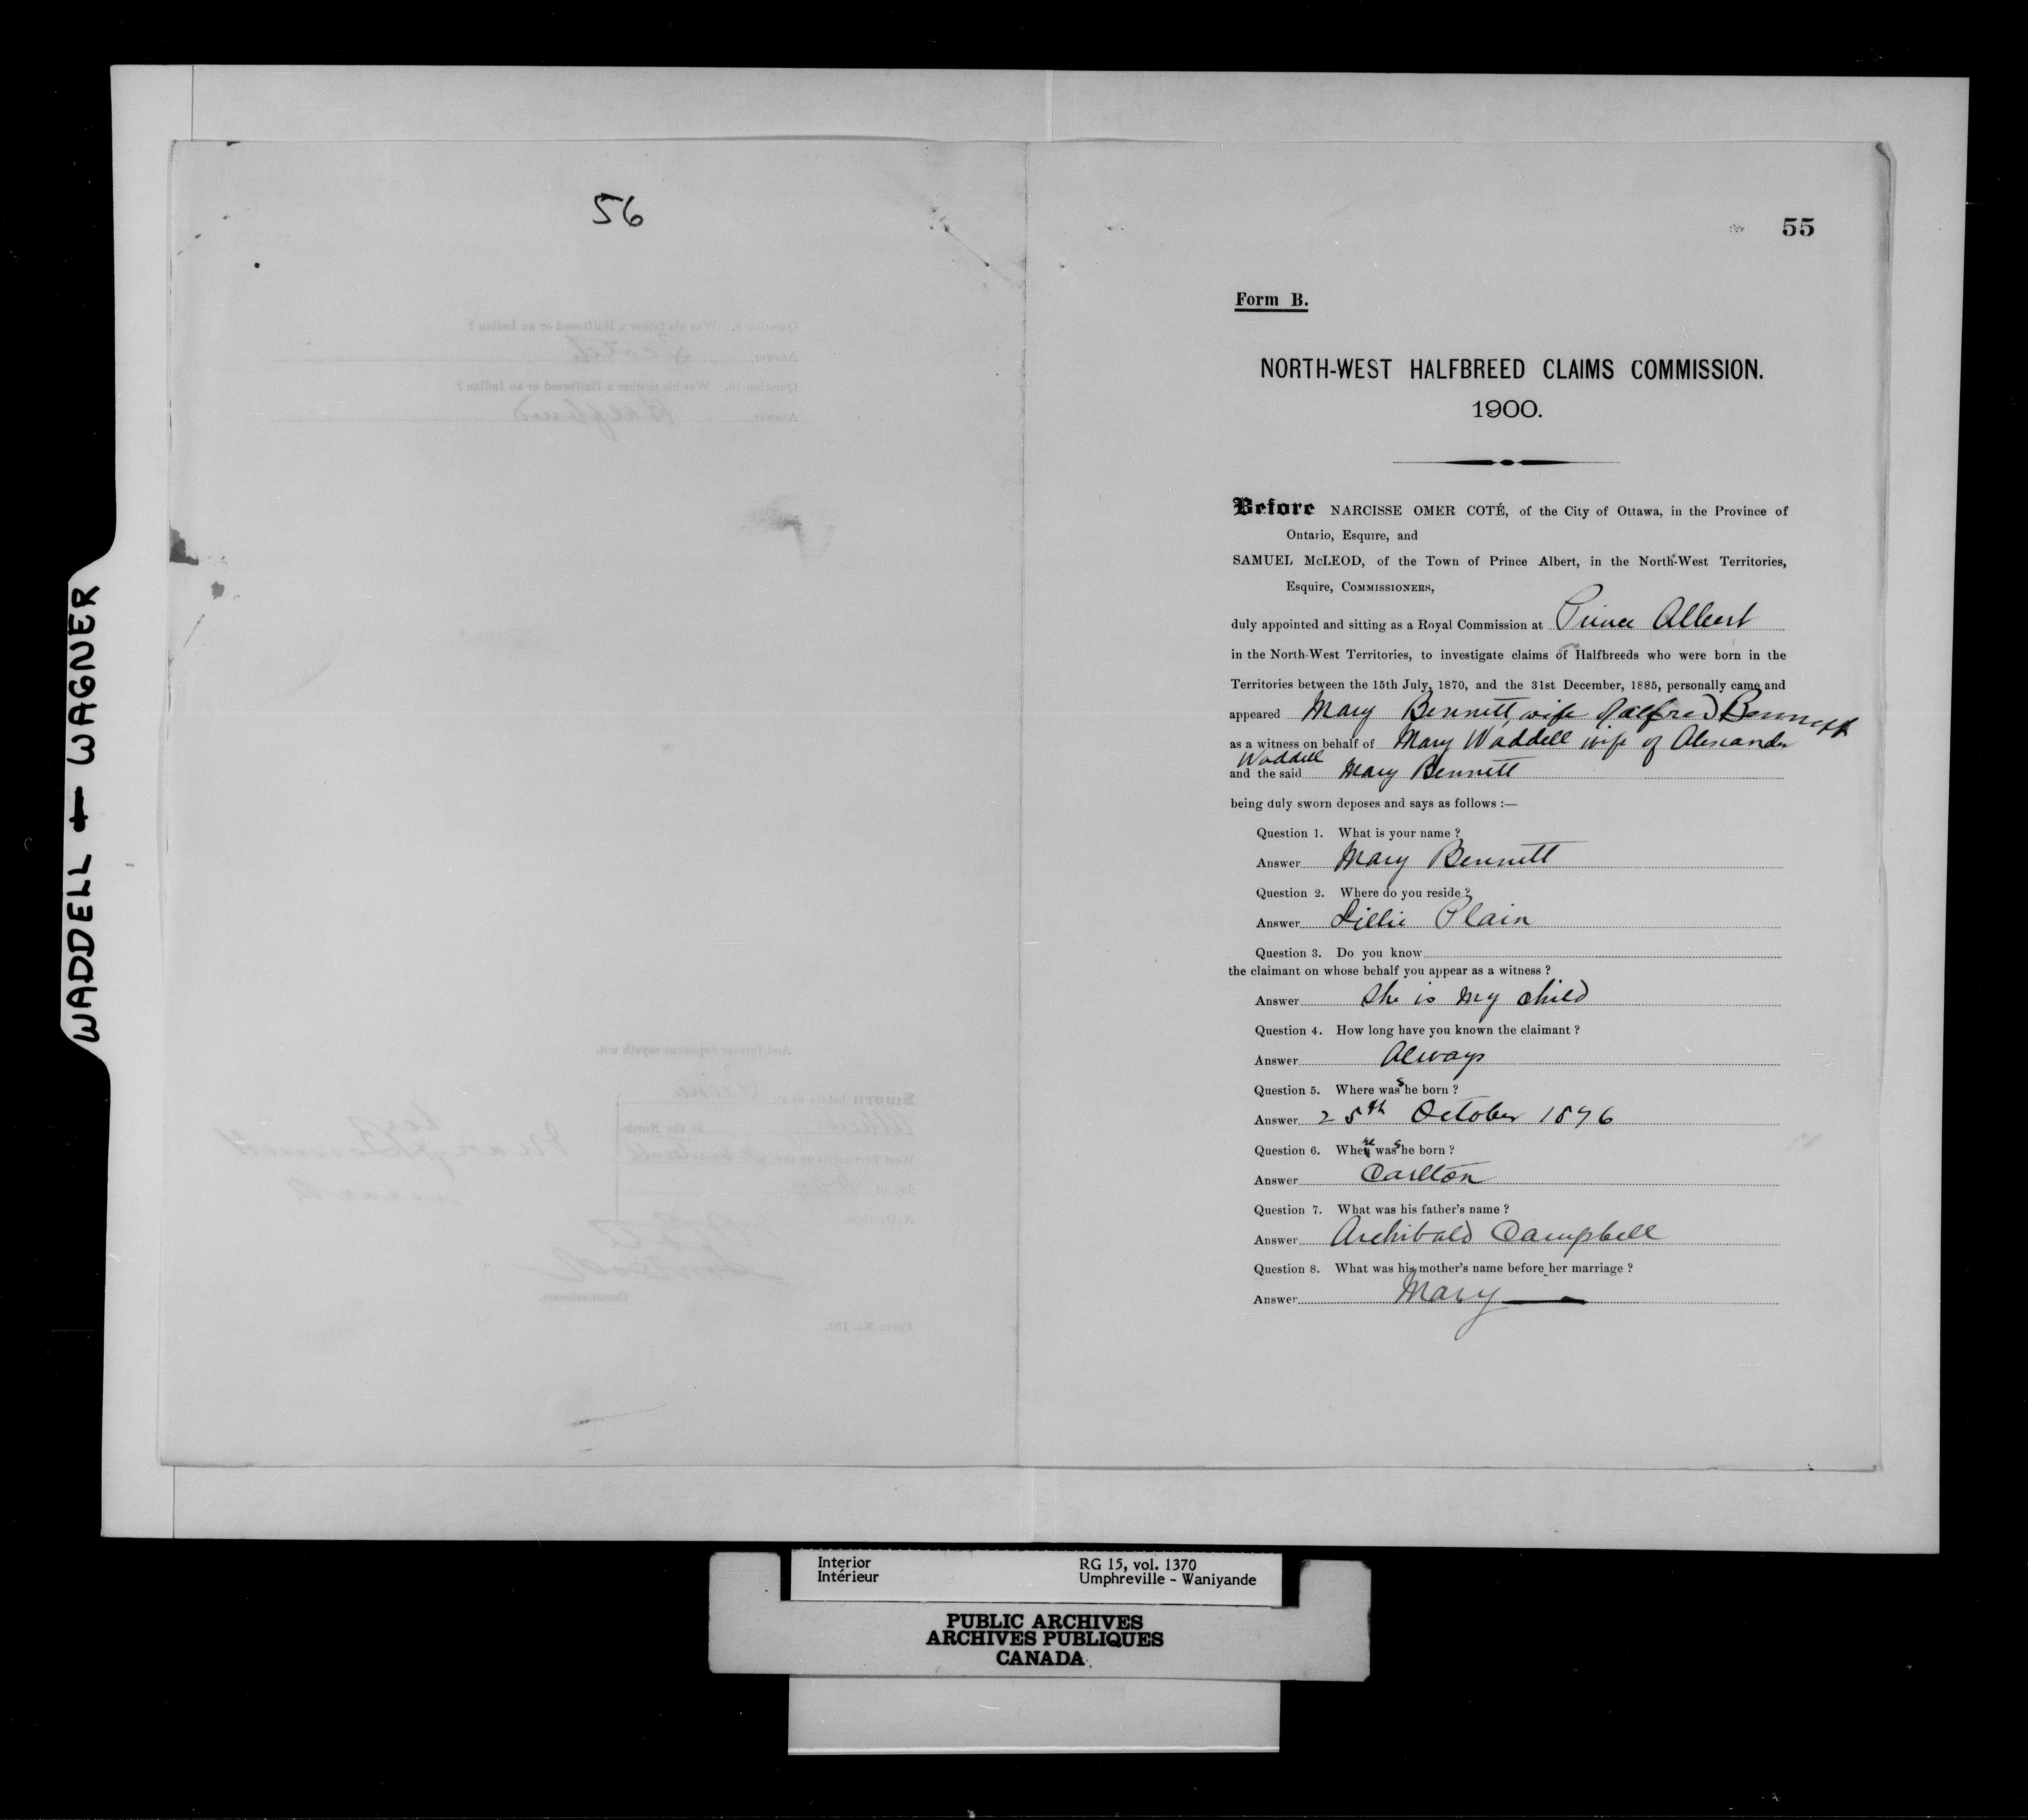 WADDELL – WAGNER
56
55
Form B.
NORTH-WEST HALFBREED CLAIMS COMMISSION.
1900.
Before NARCISSE OMER COTÉ, of the City of Ottawa, in the Province of
Ontario, Esquire, and
SAMUEL McLEOD, of the Town of Prince Albert, in the North-West Territories,
Esquire, COMMISSIONERS,
duly appointed and sitting as a Royal Commission at Prince Albert
in the North-West Territories, to investigate claims of Halfbreeds who were born in the
Territories between the 15th July, 1870, and the 31st December, 1885, personally came and
appeared Mary Bennett, wife of Alfred Bennett
as a witness on behalf of Mary Waddell wife of Alexander
Waddell
and the said Mary Bennett
being duly sworn deposes and says as follows :—
Question 1. What is your name ?
Answer Mary Bennett
Question 2. Where do you reside ?
Answer Plain
Question 3. Do you know
the claimant on whose behalf you appear as a witness ?
Answer She is my child
Question 4. How long have you known the claimant ?
Answer Always
Question 5. Where was she born ?
Answer 25th October 1876
Question 6. Where was she born ?
Answer Carlton
Question 7. What was his father's name ?
Answer Archibald Campbell
Question 8. What was his mother's name before her marriage ?
Answer Mary —
Question 9. Was his father a Halfbreed or an Indian ?
Answer Scotch
Question 10. Was his mother a Halfbreed or an Indian ?
Answer Halfbreed
And further deponent sayeth not.
Sworn before us at Prince
Albert in the North-
West Territories on the
day of
A.D. 1900.
her
Mary x Bennett
mark
Commissioners.
Form No. 152.
Interior
Intérieur
RG 15, vol. 1370
Umphreville - Waniyande
PUBLIC ARCHIVES
ARCHIVES PUBLIQUES
CANADA